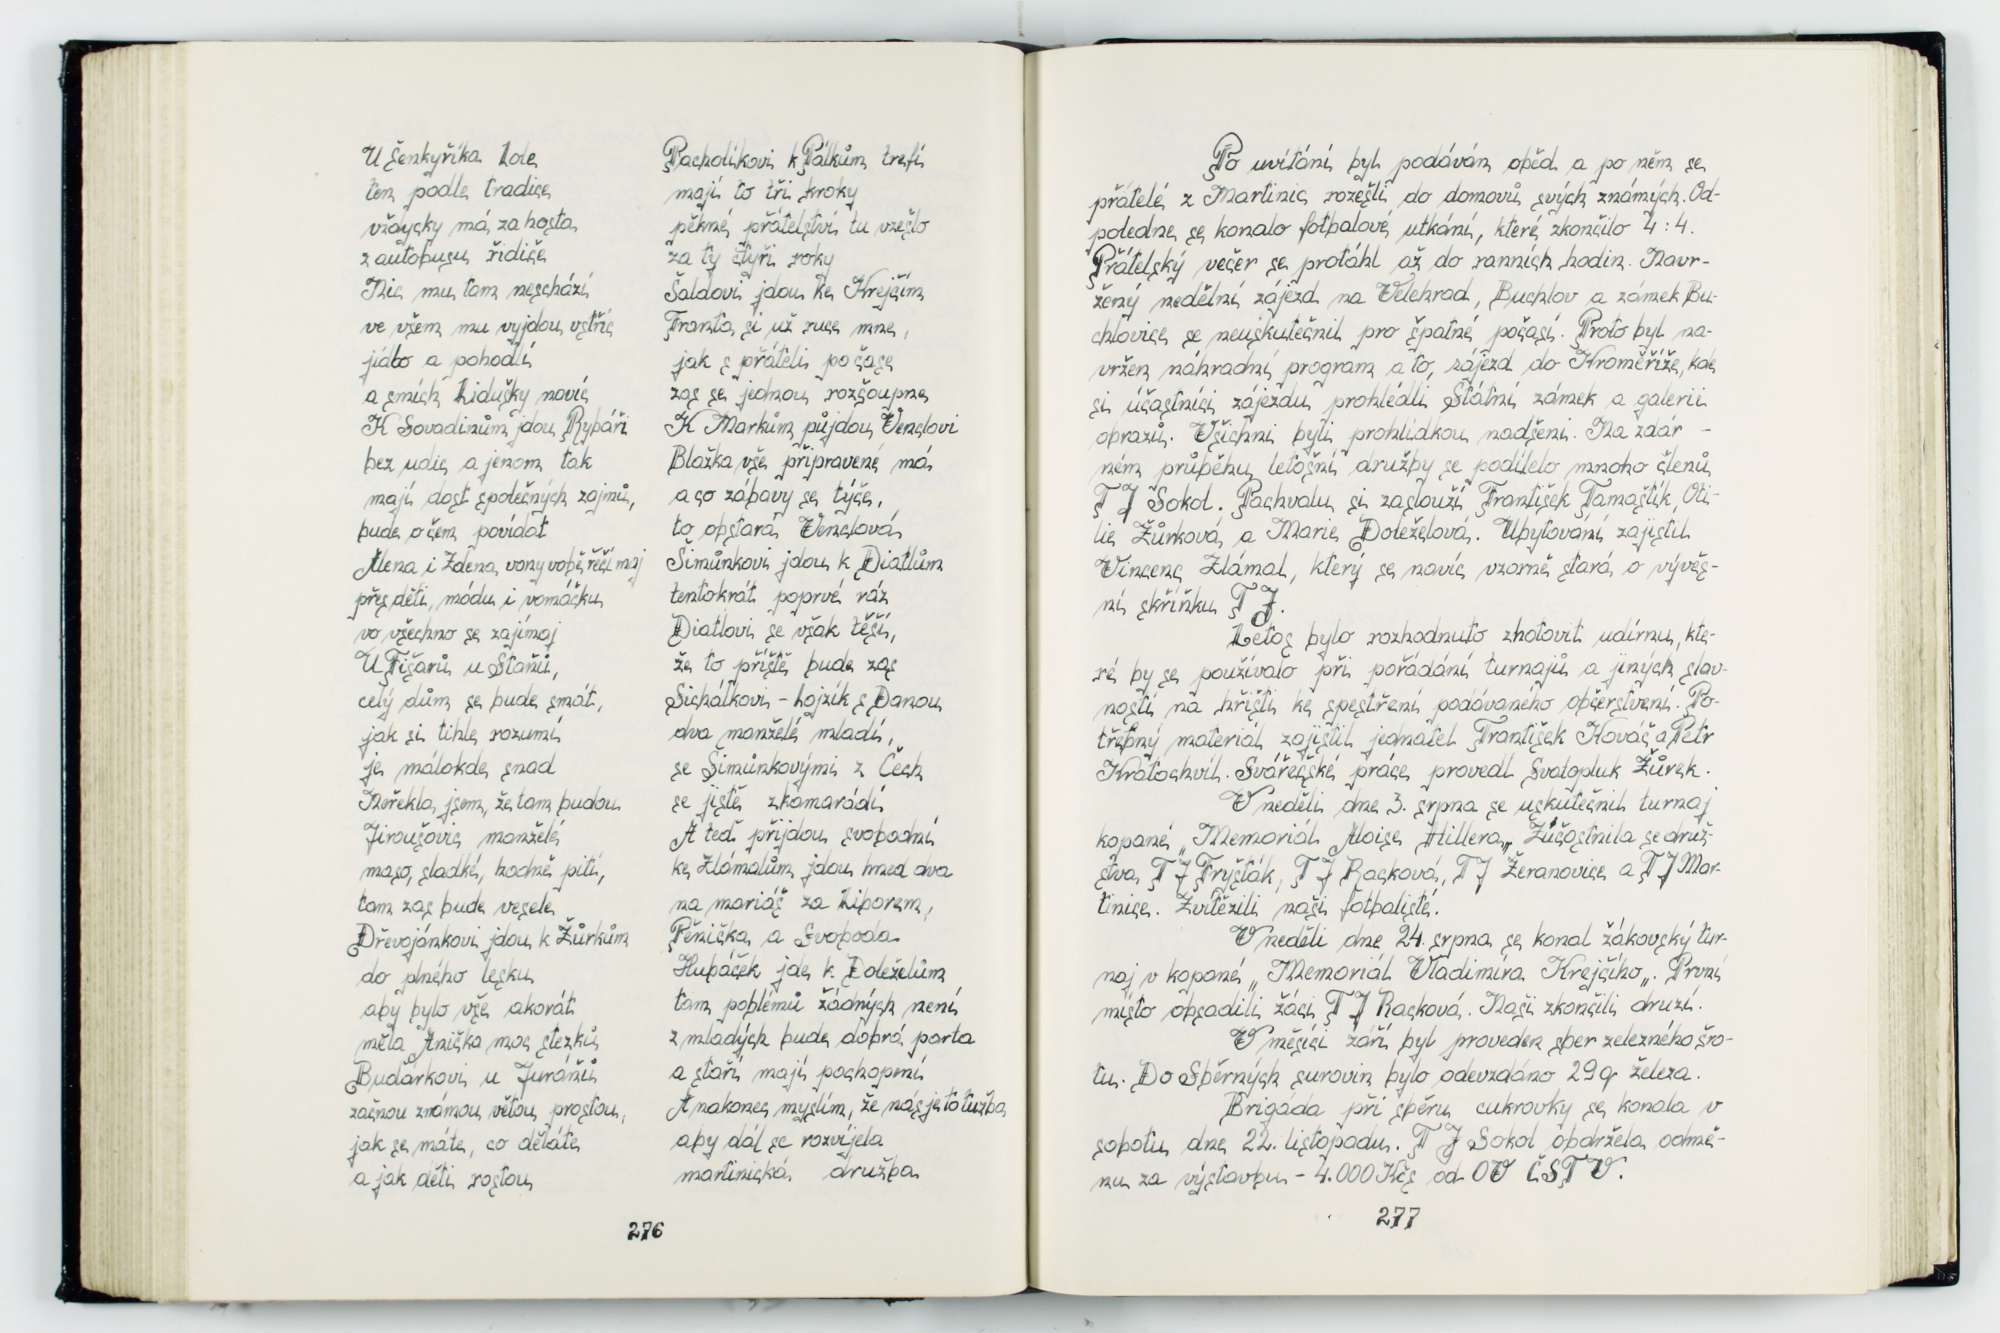 U Šenkyříka Lole
ten podle tradice
vždycky má za hosta
z autobusu řidiče
Nic mu tam neschází
ve všem mu vyjdou vstříc
jídlo a pohodlí
a smích Lidušky navíc
K Sovadinům jdou Rybáři
bez udic a jenom tak
mají dost společných zajmů,
bude o čem povídat
Alena i Zdena vony vobě řečí maj
přes děti, módu i vomáčku
vo všechno se zajímaj
U Fišarů u Staňů,
celý dům se bude smát,
jak si tihle rozumí
je málokde snad
Neřekla jsem, že tam budou
Jiroušovic manželé
maso, sladké, hodně pití,
tam zas bude vesele
Dřevojánkovi jdou k Žůrkům
do plného lesku
aby bylo vše akorát
měla Anička moc stezků
Budárkovi u Juráňů
začnou známou větou prostou,
jak se máte, co děláte
a jak děti rostou
Pacholíkovi k Pálkům trefí
mají to tři kroky
pěkné přátelství tu vzešlo
za ty čtyři roky
Šaldovi jdou ke Krejčím
Franta si už ruce mne,
jak s přáteli po čase
zas se jednou rozšoupne
K Markům půjdou Venclovi
Blažka vše připravené má
a co zábavy se týče,
to obstará Venclová
Šimůnkovi jdou k Diatlům
tentokrát poprvé ráz
Diatlovi se však těší,
že to příště bude zas
Sichálkovi - Lojzík s Danou
dva manželé mladí,
se Šimůnkovými z Čech
se jistě zkamarádí
A teď přijdou svobodní
ke Zlámalům jdou hned dva
na mariáš za Liborem,
Pěnička a Svoboda
Hubáček jde k Doleželům
tam poblémů žádných není
z mladých bude dobrá parta
a staří mají pochopení
A nakonec myslím, že nás je to tužba
aby dál se rozvíjela
martinická družba
276
Po uvítání byl podáván oběd a po něm se
přátelé z Martinic rozešli do domovů svých známých. Od-
poledne se konalo fotbalové utkání, které zkončilo 4 : 4.
Přátelský večer se protáhl až do ranních hodin. Navr-
žený nedělní zájezd na Velehrad, Buchlov a zámek Bu-
chlovice se neuskutečnil pro špatné počasí. Proto byl na-
vržen náhradní program a to, zájezd do Kroměříže, kde
si účastníci zájezdu prohlédli Státní zámek a galerii
obrazů. Všichni byli prohlídkou nadšeni. Na zdár -
ném průběhu letošní družby se podílelo mnoho členů
T J Sokol. Pachvalu si zaslouží František Tamaštík, Oti-
lie Žůrková a Marie Doleželová. Ubytování zajistil
Vincenc Zlámal, který se navíc vzorně stará o vývěs-
ní skříňku T J.
Letos bylo rozhodnuto zhotovit udírnu, kte-
ré by se používalo při pořádání turnajů a jiných slav-
ností na hřišti ke spestření podávaného občerstvení. Po-
třebný materiál zajistil jednatel František Kováč a Petr
Kratochvíl. Svářečské práce provedl Svatopluk Žůrek.
V neděli dne 3. srpna se uskutečnil turnaj
kopané „Memoriál Aloise Hillera„ Zúčastnila se druž-
stva T J Fryšták, T J Racková, T J Žeranovice a T J Mar-
tinice. Zvítězili naši fotbalisté.
V neděli dne 24. srpna se konal žákovský tur-
naj v kopané „ Memoriál Vladimíra Krejčího„. První
místo obsadili žáci T J Racková. Naši zkončili druzí.
V měsíci září byl proveden sběr železného šro-
tu. Do Sběrných surovin bylo odevzdáno 29 q železa.
Brigáda při sběru cukrovky se konala v
sobotu dne 22. listopadu. T J Sokol obdržela odmě-
nu za výstavbu - 4.000 Kčs od OV ČSTV.
277